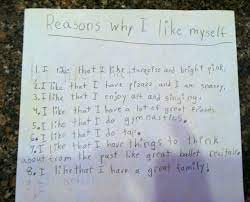 Reasons why I like myself
1. I like that I like turquoise and bright pink.
2. I like that I have pizazz and I am sneaky.
3. I like that I enjoy art and singing.
4. I like that I have a lot of great friends
5. I like that I do gymnastics.
6. I like that I do tap.
7. I like that I have things to think
about from the past like great ballet recitals.
8. I like that I have a great family!